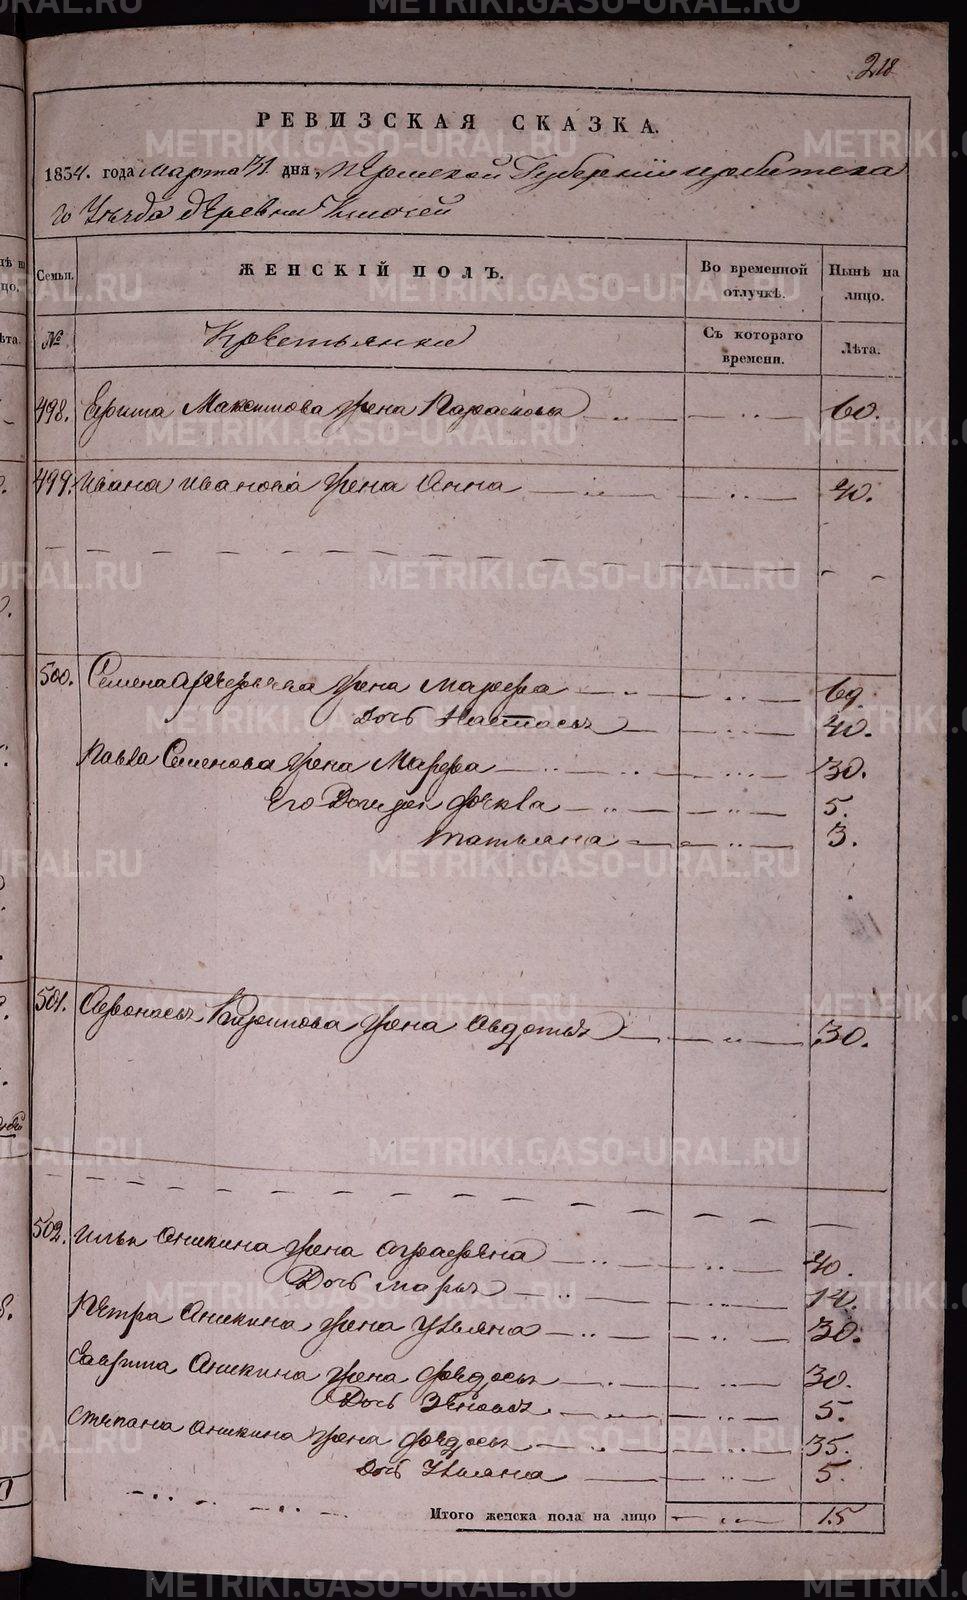 218
РЕВИЗСКАЯ СКАЗКА.
1834. года марта 31 дня, Пермской Губернии ирбитска
го Уезда деревни Ключей
Семьи. ЖЕНСКІЙ ПОЛЪ. Во временной отлучкѣ. Нынѣ на лицо.
№ Крестьянки Съ котораго времени. Лѣта.
498. Максимова жена 60.
499. Ивана Иванова жена Анна 40.
500. Семена жена Марфа 69.
Дочь Настасья 40.
Павла Семенова жена Марфа 30.
Его Дочери Фекла 5.
Татьяна 3.
501. Афонасья жена Авдотья 30.
502. Ильи Аникина жена Аграфена 40.
Дочь Марья 14.
Петра Аникина жена Ульяна 30.
Гаврила Аникина жена Федосья 30.
Дочь Зеновья 5.
Степана Аникина жена Федосья 35.
Дочь Ульяна 5.
Итого женска пола на лицо 15
METRIKI.GASO-URAL.RU